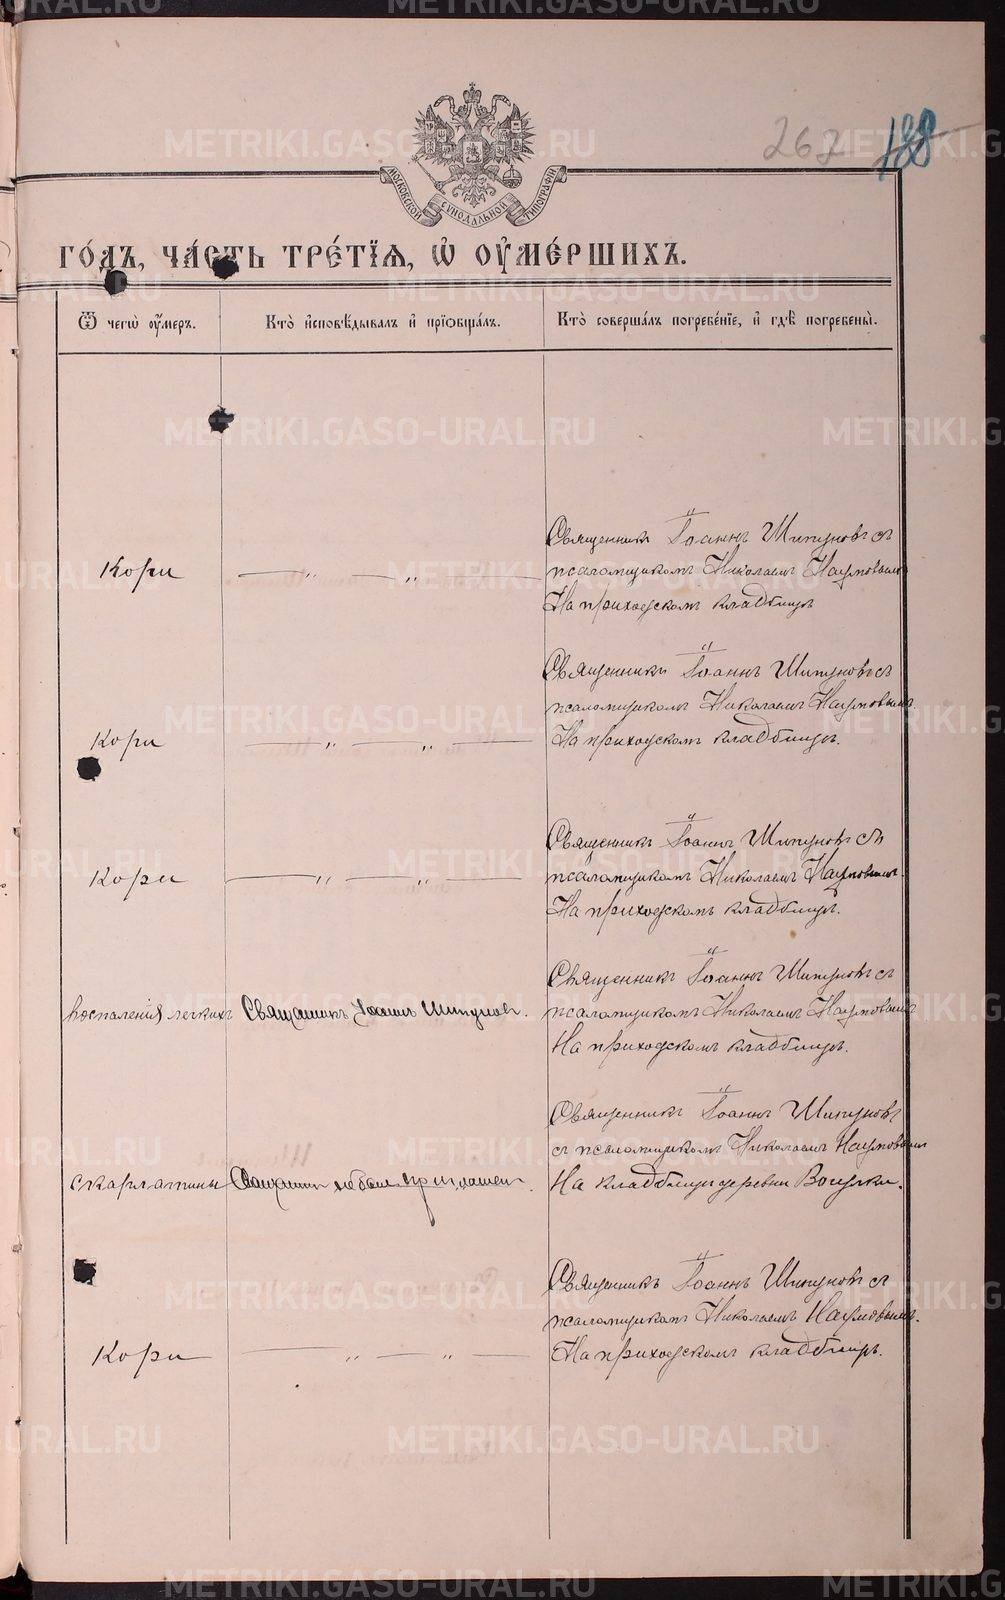 267
188
МОСКОВСКОЙ СѴНОДАЛЬНОЙ ТИПОГРАФІИ
ГО́ДЪ, ЧА́СТЬ ТРЕ́ТІѦ, Ѡ҆ ОУ҆МЕ́РШИХЪ.
Ѿ чегѡ̀ оу҆́меръ.
Кто̀ и҆сповѣ́дывалъ и҆ прїѻбща́лъ.
Кто̀ соверша́лъ погребе́нїе, и҆ гдѣ̀ погребены̀.
Кори
— „ — „ —
Священникъ Іоаннъ Шипуновъ съ
псаломщикомъ Николаемъ Наумовымъ
На приходскомъ кладбищѣ
Кори
— „ — „ —
Священникъ Іоаннъ Шипуновъ съ
псаломщикомъ Николаемъ Наумовымъ.
На приходскомъ кладбищѣ.
Кори
— „ — „ —
Священникъ Іоаннъ Шипуновъ съ
псаломщикомъ Николаемъ Наумовымъ.
На приходскомъ кладбищѣ.
Воспаленія легкихъ
Священникъ Іоаннъ Шипуновъ.
Священникъ Іоаннъ Шипуновъ съ
псаломщикомъ Николаемъ Наумовымъ
На приходскомъ кладбищѣ.
скарлатины
Священникъ не былъ приглашенъ.
Священникъ Іоаннъ Шипуновъ
съ псаломщикомъ Николаемъ Наумовымъ
На кладбищѣ деревни Вогулки.
Кори
— „ — „ —
Священникъ Іоаннъ Шипуновъ съ
псаломщикомъ Николаемъ Наумовымъ.
На приходскомъ кладбищѣ.
METRIKI.GASO-URAL.RU